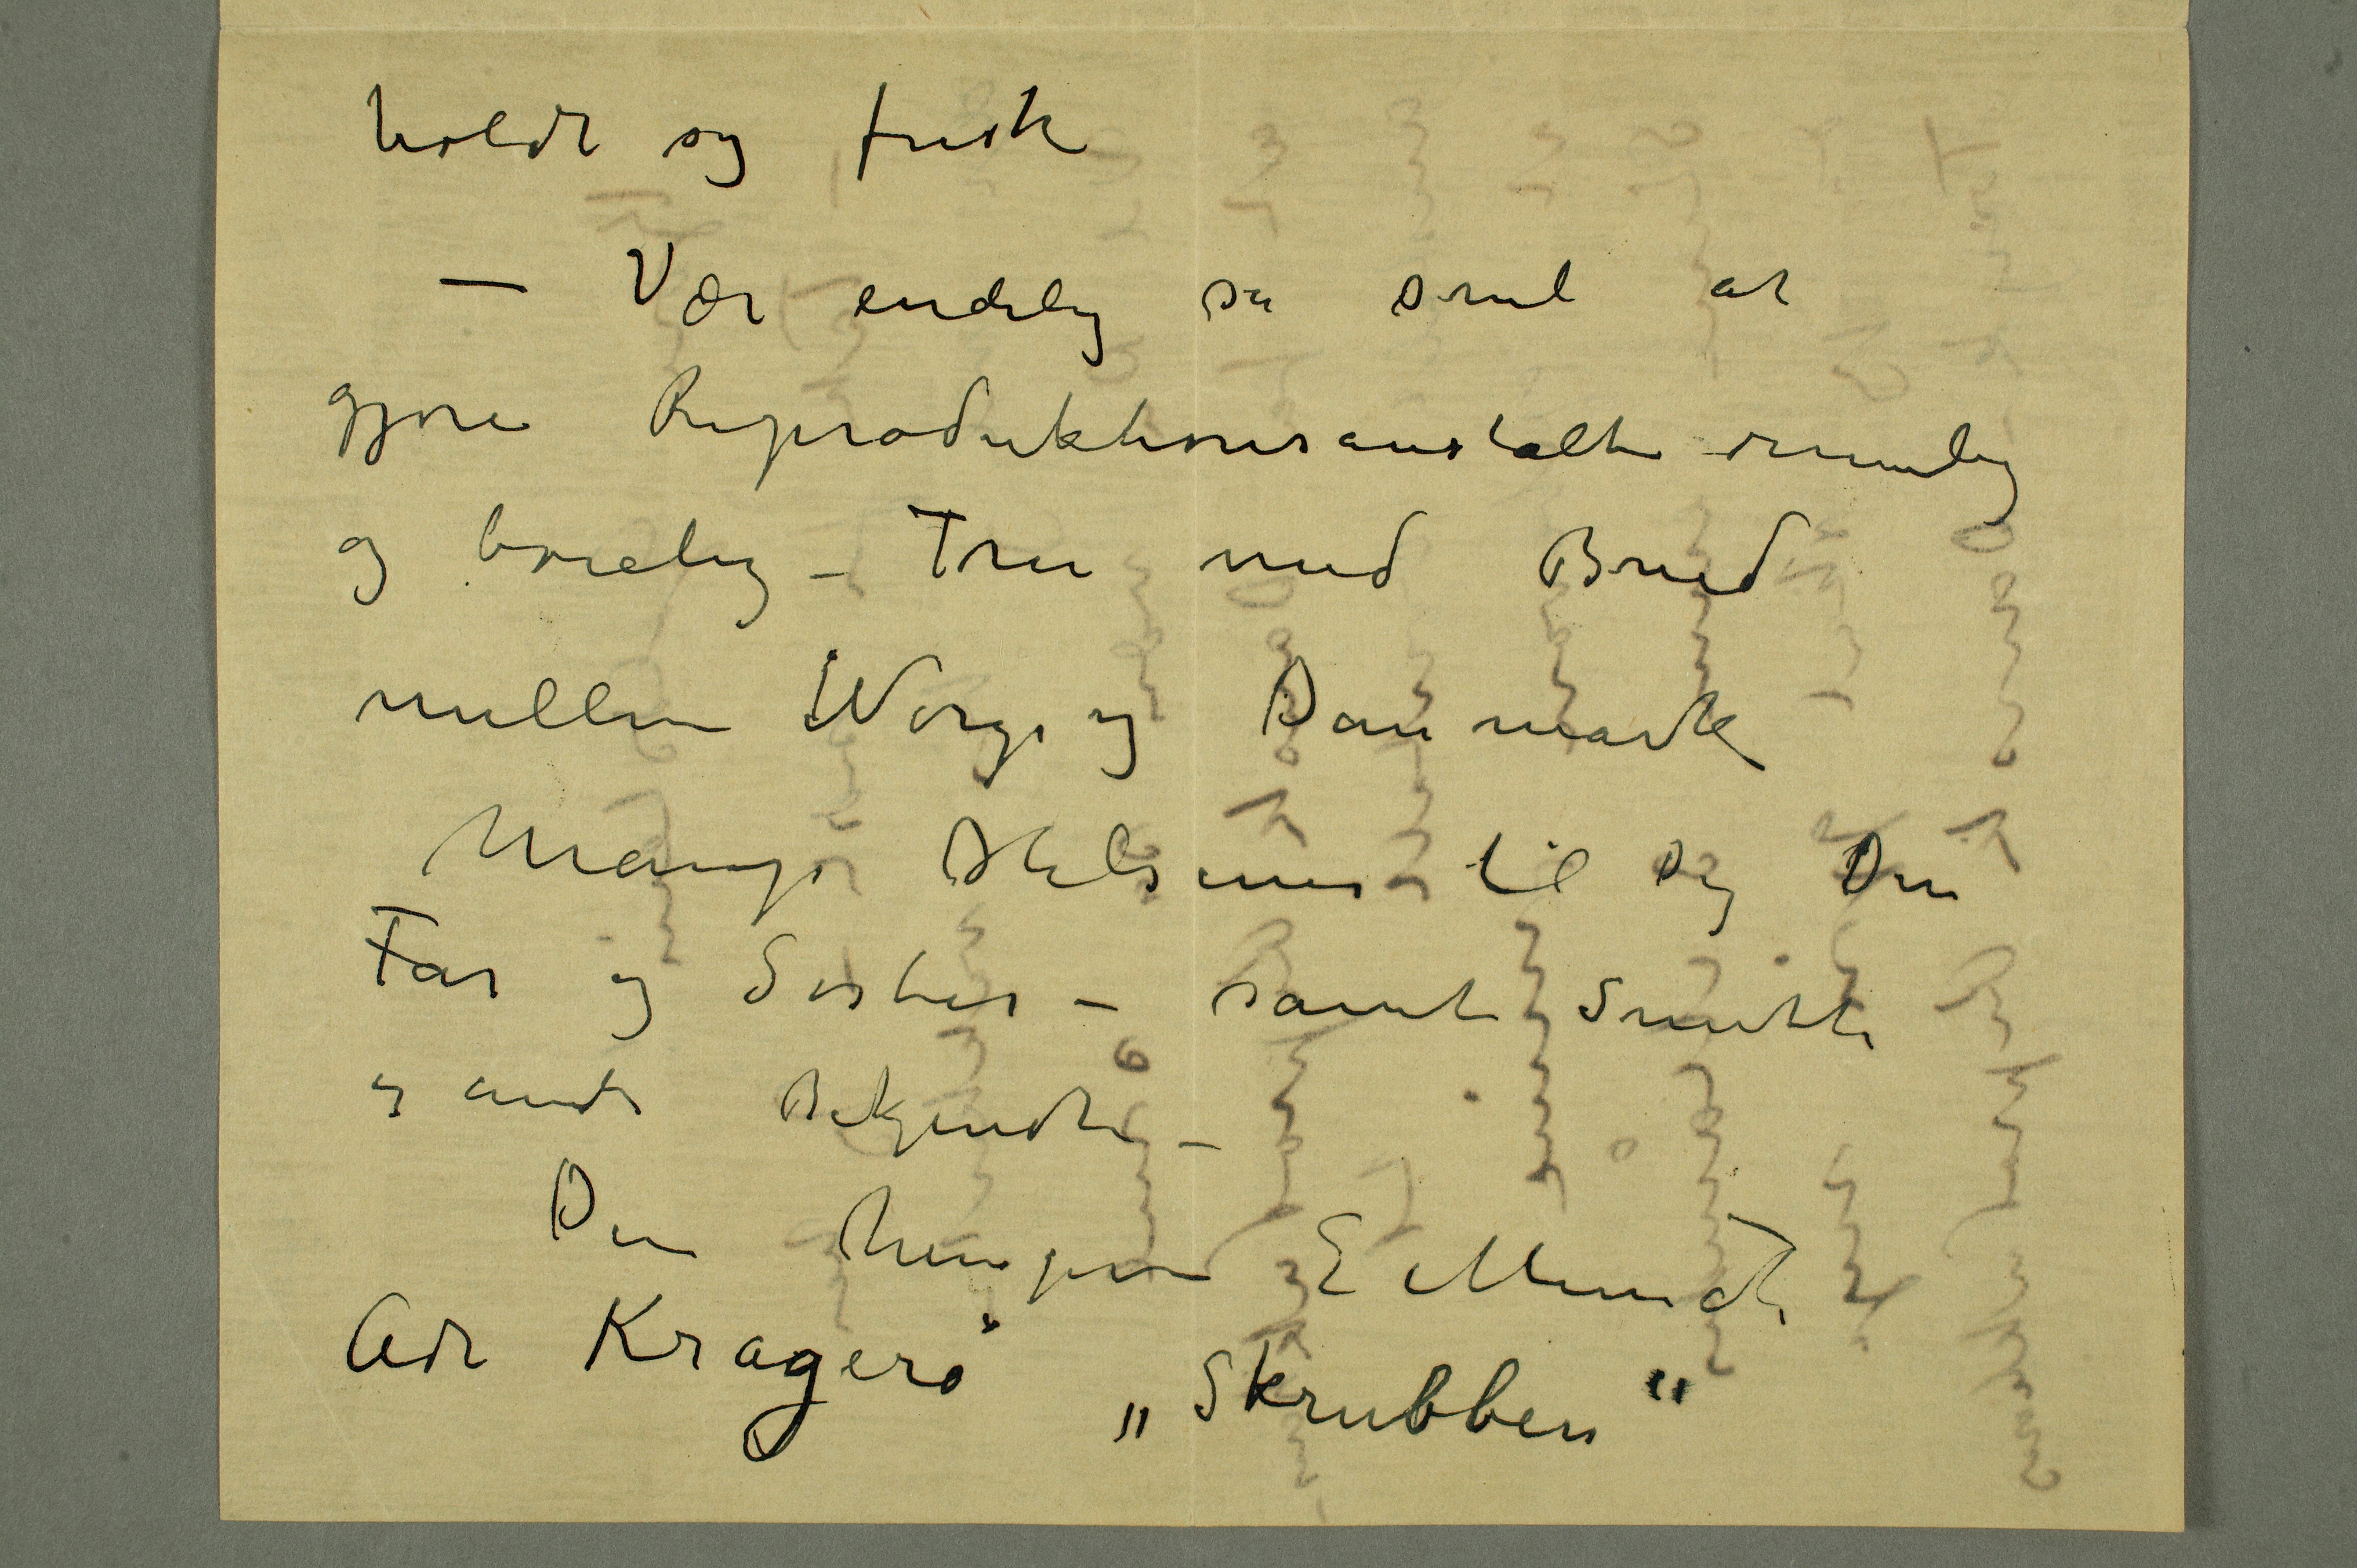 holdt og frisk
— Vær endelig så snil at
gjøre Reproduktionsanstalten rimelig
og bøielig – Tru med Brud
mellem Norge og Danmark
Mange Hilsener til Dig Din
Far og Søster – samt Smutte
og andre Bekjendte –
Din hengivne E Munch
Adr Kragerø „Skrubben"